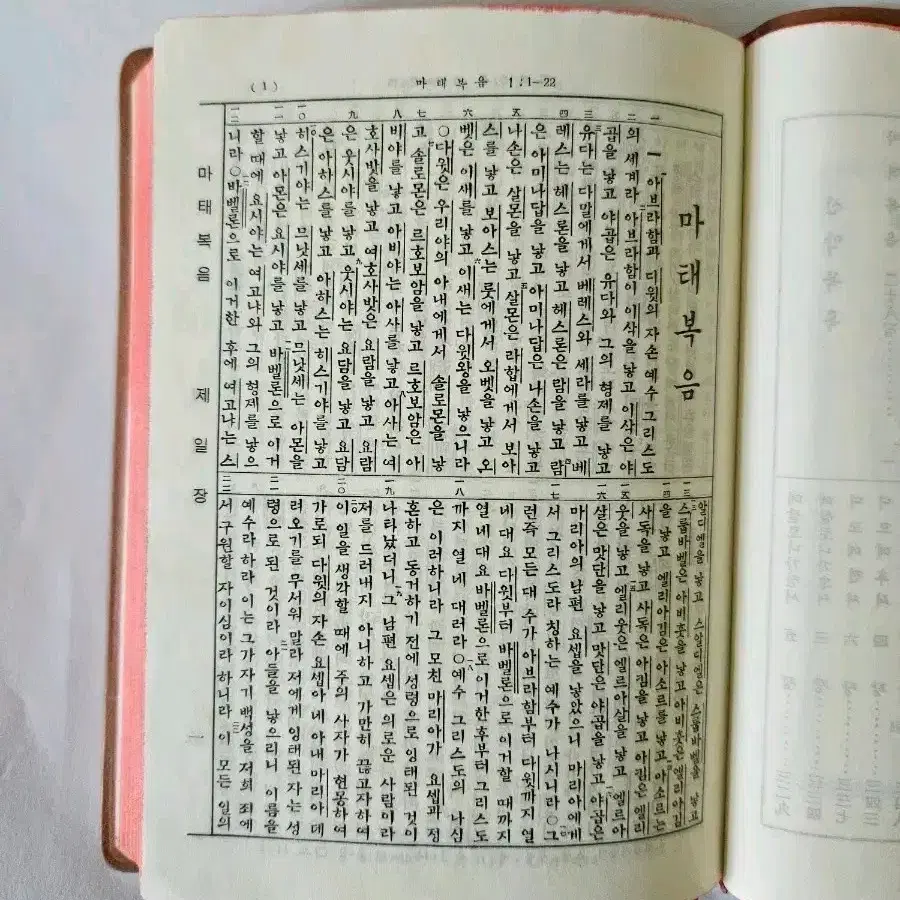 (1)
마태복음 1:1-22
마태복음
一 아브라함과 다윗의 자손 예수 그리스도
의 세계라 아브라함이 이삭을 낳고 이삭은 야
곱을 낳고 야곱은 유다와 그의 형제를 낳고
유다는 다말에게서 베레스와 세라를 낳고 베
레스는 헤스론을 낳고 헤스론은 람을 낳고 람
은 아미나답을 낳고 아미나답은 나손을 낳고
나손은 살몬을 낳고 살몬은 라합에게서 보아
스를 낳고 보아스는 룻에게서 오벳을 낳고 오
벳은 이새를 낳고 이새는 다윗왕을 낳으니라
○다윗은 우리야의 아내에게서 솔로몬을 낳
고 솔로몬은 르호보암을 낳고 르호보암은 아
비야를 낳고 아비야는 아사를 낳고 아사는 여
호사밧을 낳고 여호사밧은 요람을 낳고 요람
은 웃시야를 낳고 웃시야는 요담을 낳고 요담
은 아하스를 낳고 아하스는 히스기야를 낳고
히스기야는 므낫세를 낳고 므낫세는 아몬을
낳고 아몬은 요시야를 낳고 바벨론으로 이거
할 때에 요시야는 여고냐와 그의 형제를 낳으
니라 ○바벨론으로 이거한 후에 여고냐는 스
알디엘을 낳고 스알디엘은 스룹바벨을 낳고
스룹바벨은 아비훗을 낳고 아비훗은 엘리아김
을 낳고 엘리아김은 아소르를 낳고 아소르는
사독을 낳고 사독은 아킴을 낳고 아킴은 엘리
웃을 낳고 엘리웃은 엘르아살을 낳고 엘르아
살은 맛단을 낳고 맛단은 야곱을 낳고 야곱은
마리아의 남편 요셉을 낳았으니 마리아에게
서 그리스도라 칭하는 예수가 나시니라 ○그
런즉 모든 대 수가 아브라함부터 다윗까지 열
네 대요 다윗부터 바벨론으로 이거할 때까지
열 네 대요 바벨론으로 이거한 후부터 그리스도
까지 열 네 대러라 ○예수 그리스도의 나심
은 이러하니라 그 모친 마리아가 요셉과 정
혼하고 동거하기 전에 성령으로 잉태된 것이
나타났더니 그 남편 요셉은 의로운 사람이라
저를 드러내지 아니하고 가만히 끊고자하여
이 일을 생각할 때에 주의 사자가 현몽하여
가로되 다윗의 자손 요셉아 네 아내 마리아 데
려오기를 무서워 말라 저에게 잉태된 자는 성
령으로 된 것이라 아들을 낳으리니 이름을
예수라 하라 이는 그가 자기 백성을 저희 죄에
서 구원할 자이심이라 하니라 이 모든 일의
마태복음 제일장
一